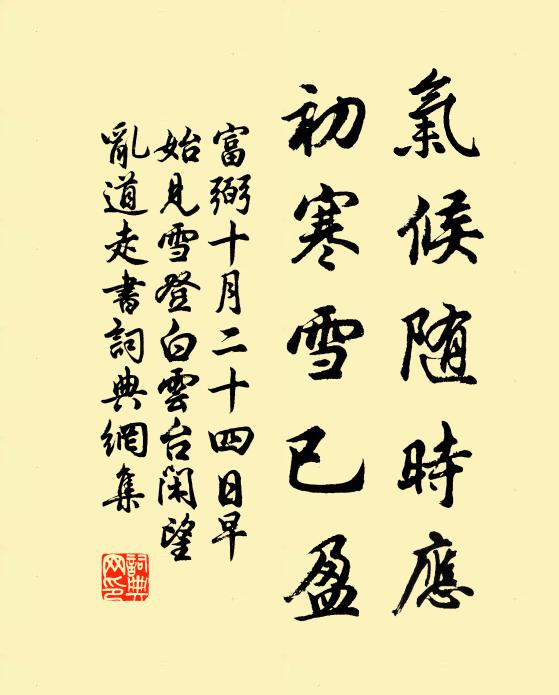 氣候随時應
初寒雪已盈
富弼十月二十四日早
始見雪登白雲台閑望
亂道走書詞典網集
詞典
网印